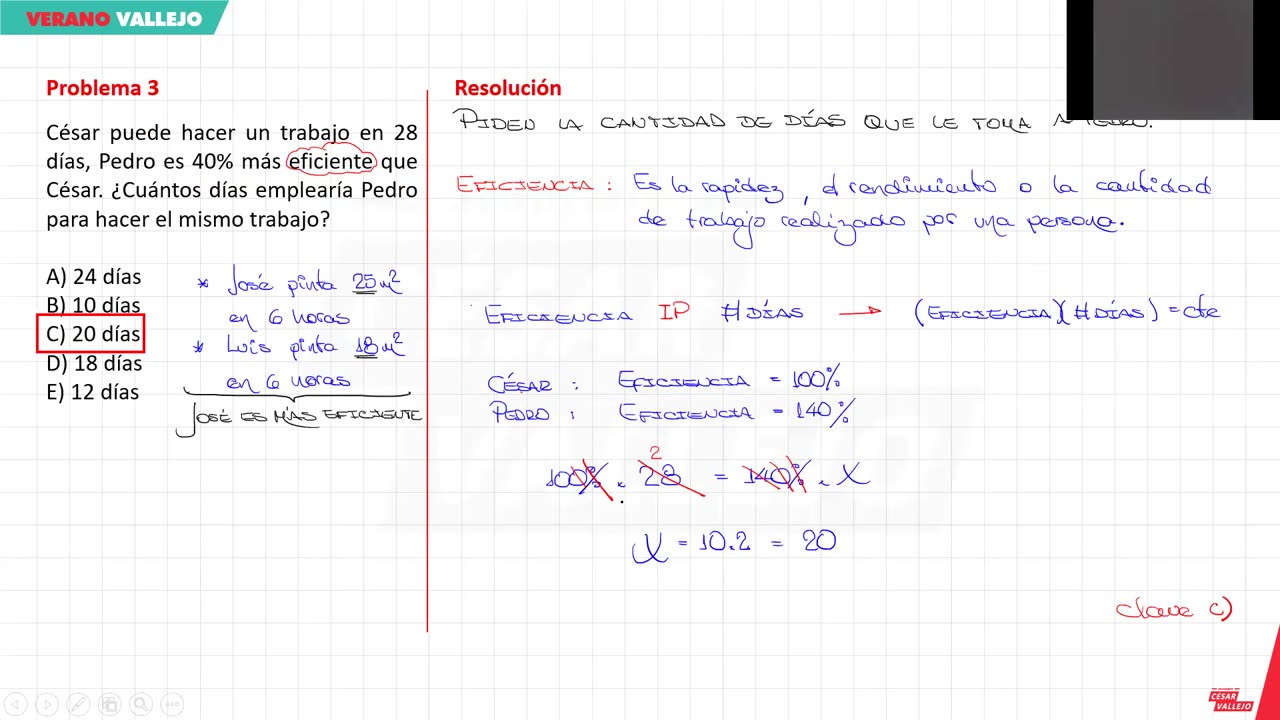 VERANO VALLEJO
Problema 3
César puede hacer un trabajo en 28
días, Pedro es 40% más eficiente que
César. ¿Cuántos días emplearía Pedro
para hacer el mismo trabajo?
A) 24 días
B) 10 días
C) 20 días
D) 18 días
E) 12 días
* José pinta 25 m²
en 6 horas
* Luis pinta 18 m²
en 6 horas
JOSÉ ES MÁS EFICIENTE
Resolución
PIDEN LA CANTIDAD DE DÍAS QUE LE TOMA A PEDRO.
EFICIENCIA : Es la rapidez, el rendimiento o la cantidad
de trabajo realizado por una persona.
EFICIENCIA IP #DÍAS → (EFICIENCIA)(#DÍAS) = cte
CÉSAR : EFICIENCIA = 100%
PEDRO : EFICIENCIA = 140%
2
100% . 28 = 140% . X
X = 10.2 = 20
Clave C)
CÉSAR
VALLEJO